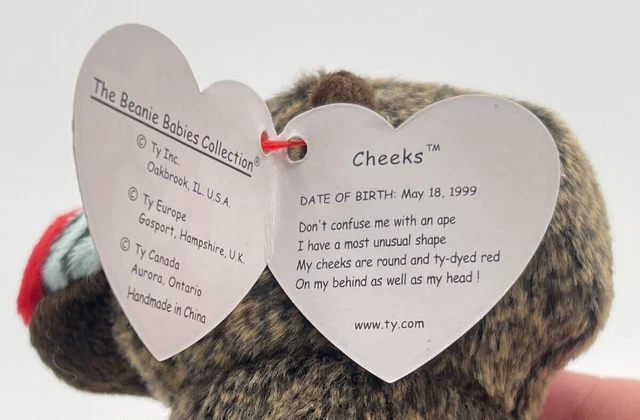 The Beanie Babies Collection®
© Ty Inc.
Oakbrook, IL. U.S.A.
© Ty Europe
Gosport, Hampshire, U.K.
© Ty Canada
Aurora, Ontario
Handmade in China
Cheeks™
DATE OF BIRTH: May 18, 1999
Don't confuse me with an ape
I have a most unusual shape
My cheeks are round and ty-dyed red
On my behind as well as my head !
www.ty.com